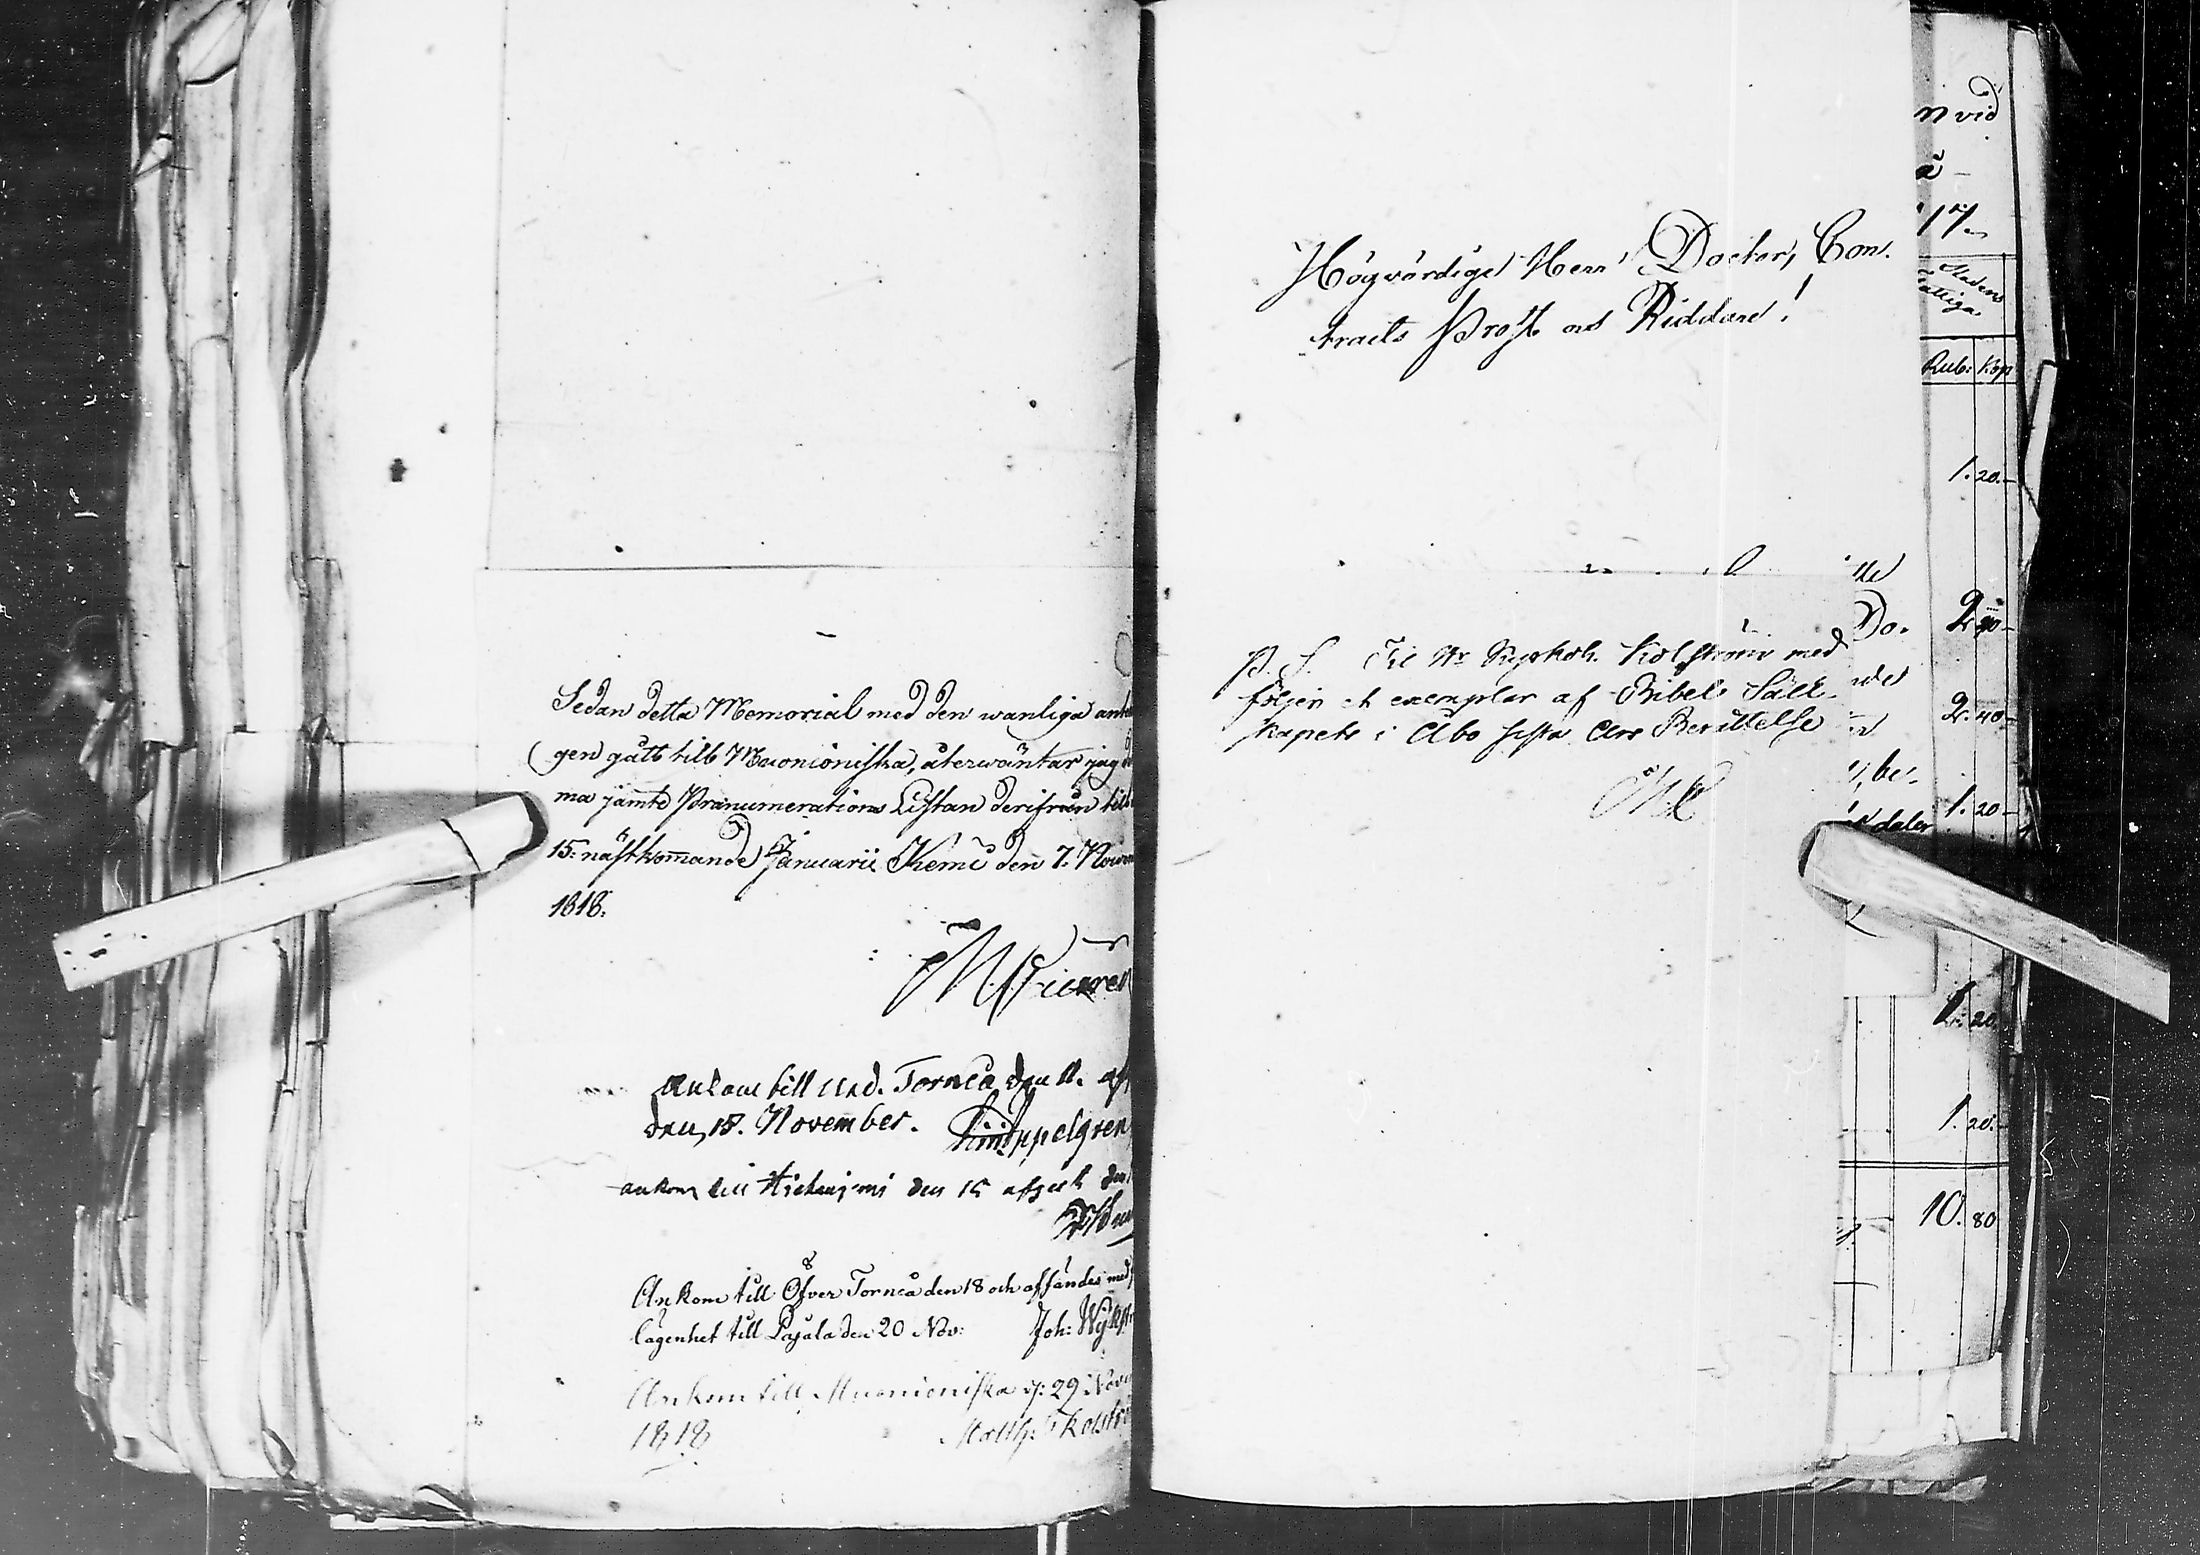 Sedan detta Memorial med den wanliga
gen gått till Muonioniska, återwäntar jag
ma jämte Pränumerations Listan derifrån till
15: nästkommande Januarii Kemi den 7. Novem
1818.
Ankom till Ned. Torneå den 11. af
den 15. November. Keppelgren
ankom till Hietaniemi den 15 afgick den
Ankom till Öfver Torneå den 18 och afsändes med
lägenhet till Pajala den 20 Nov: Joh: Wijkstr
Ankom till Muonioniska d: 29 Nove
1818 Matth: Kolströ
Högvördige Herr Doctor, Con-
tracts Prost och Riddare!
P. S. Til Hr Kyrkoh. Kolström med
följer et exemplar af Bibel Säll-
skapets i Åbo sista Års Berättelse
n vid
å -
17.
Stadens
Fattiga
Rub: Kop
1. 20. -
Do.
2. 40 -
2. 40 -
, be-
1. 20 -
daler
1. 20.
1. 20. -
10. 80